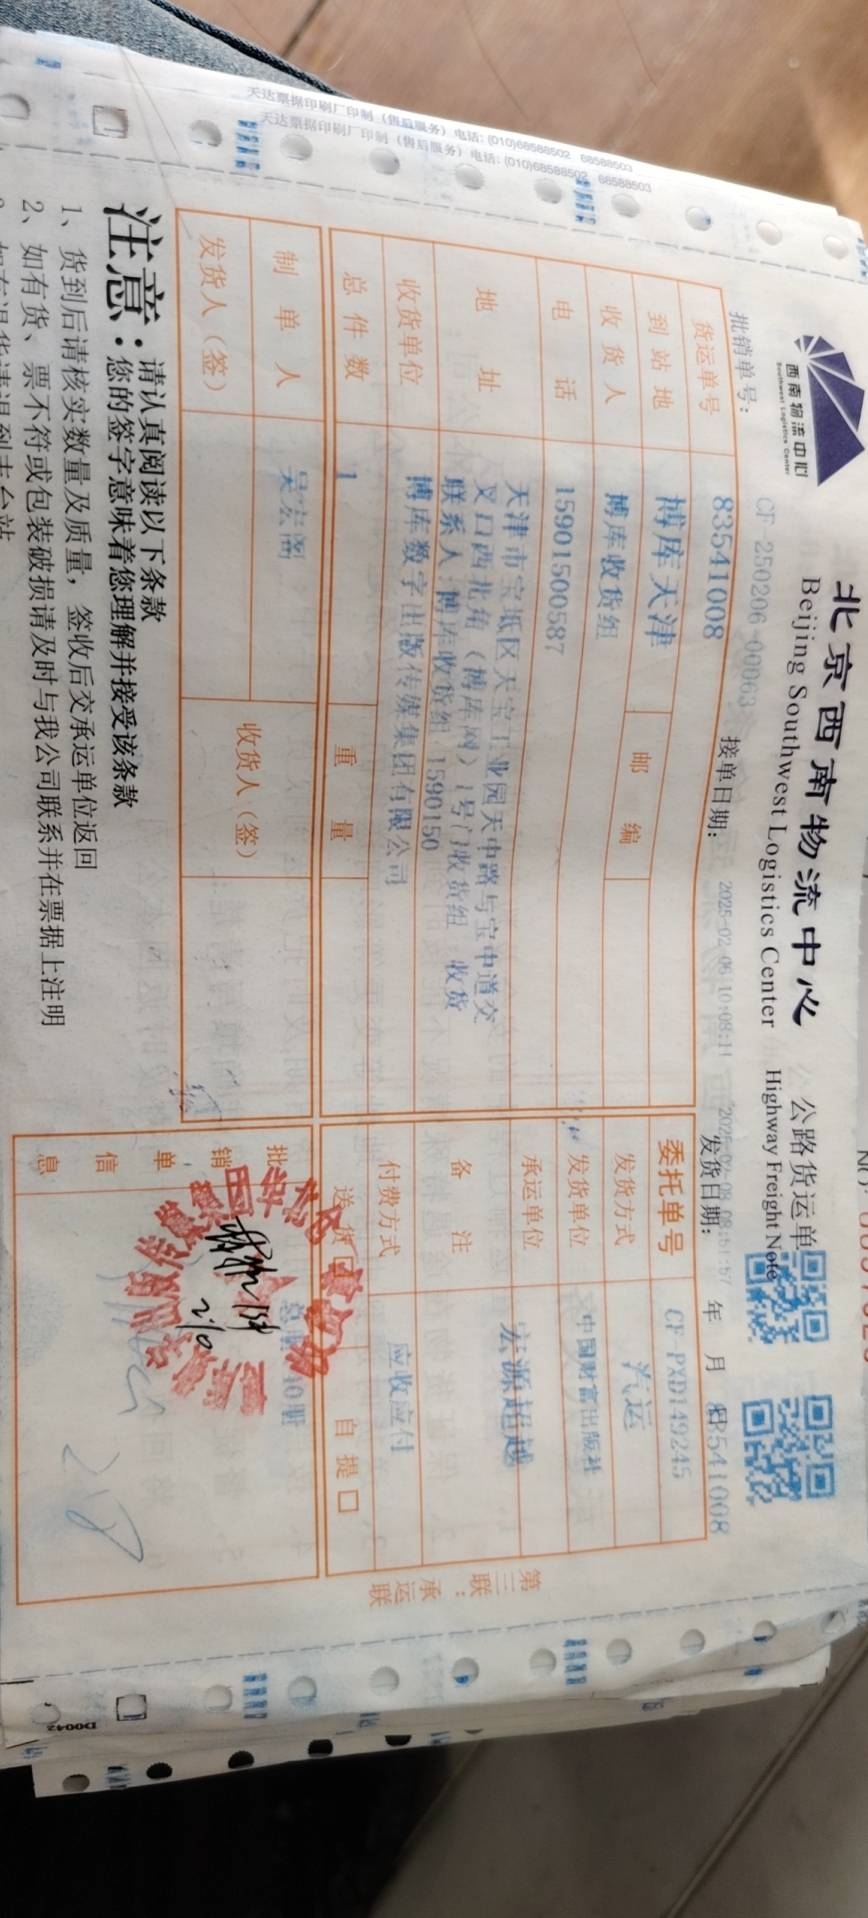 天达票据印刷厂印制（售后服务）电话: (010)68588502 68588503
天达票据印刷厂印制（售后服务）电话: (010)68588502 68588503
西南物流中心
Southwest Logistics Center
北京西南物流中心 公路货运单
Beijing Southwest Logistics Center Highway Freight Note
批销单号: CF-250206-00063 接单日期: 2025-02-06 10:08:11 发货日期: 年 月 83541008
货运单号 83541008 委托单号 CF-PXD149245
到站地 博库天津 邮编 发货方式 汽运
收货人 博库收货组 发货单位 中国财富出版社
电话 15901500587 承运单位 宏源超越
地址 天津市宝坻区天宝工业园天中路与宝中道交
叉口西北角（博库网）1号门收货组 收货
联系人:博库收货组 1590150
备注
收货单位 博库数字出版传媒集团有限公司 付费方式 应收应付
总件数 1 重量 送货口 自提口
制单人 收货人（签） 批销单信息
发货人（签）
第三联：承运联
注意：请认真阅读以下条款
您的签字意味着您理解并接受该条款
1、货到后请核实数量及质量，签收后交承运单位返回
2、如有货、票不符或包装破损请及时与我公司联系并在票据上注明